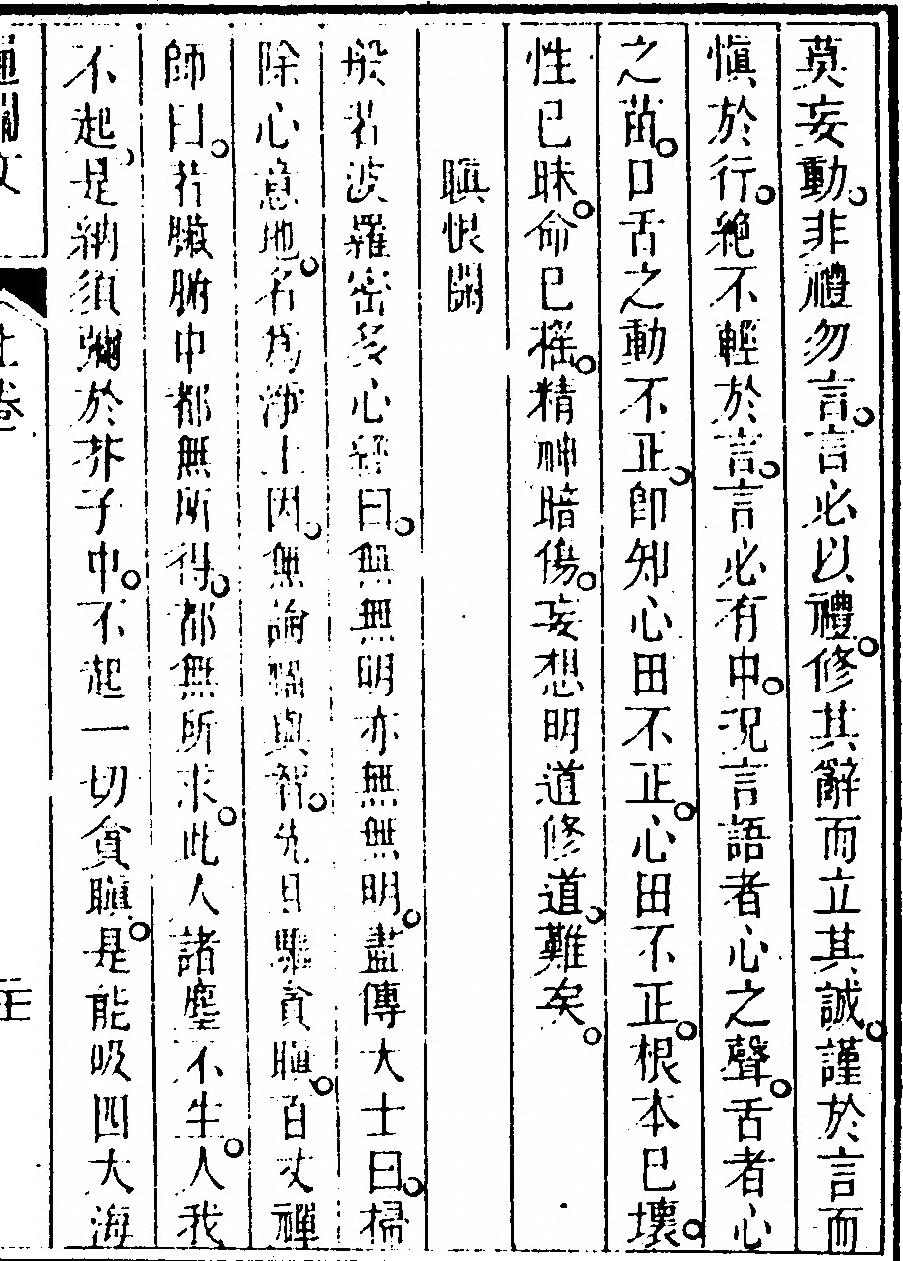 莫妄動非禮勿言言必以禮修其辭而立其誠謹於言而
慎於行絶不輕於言言必有中况言語者心之聲舌者心
之苗口舌之動不正卽知心田不正心田不正根本已壞
性已昧命已搖精神暗傷妄想明道修道難矣
瞋恨關
般若波羅密多心經曰無無明亦無無明盡傅大士曰掃
除心意地名爲淨土因無論福與智先且離貪瞋百丈禪
師曰若臟腑中都無所得都無所求此人諸塵不生人我
不起是納須彌於芥子中不起一切貪瞋是能吸四大海
通關文
上卷